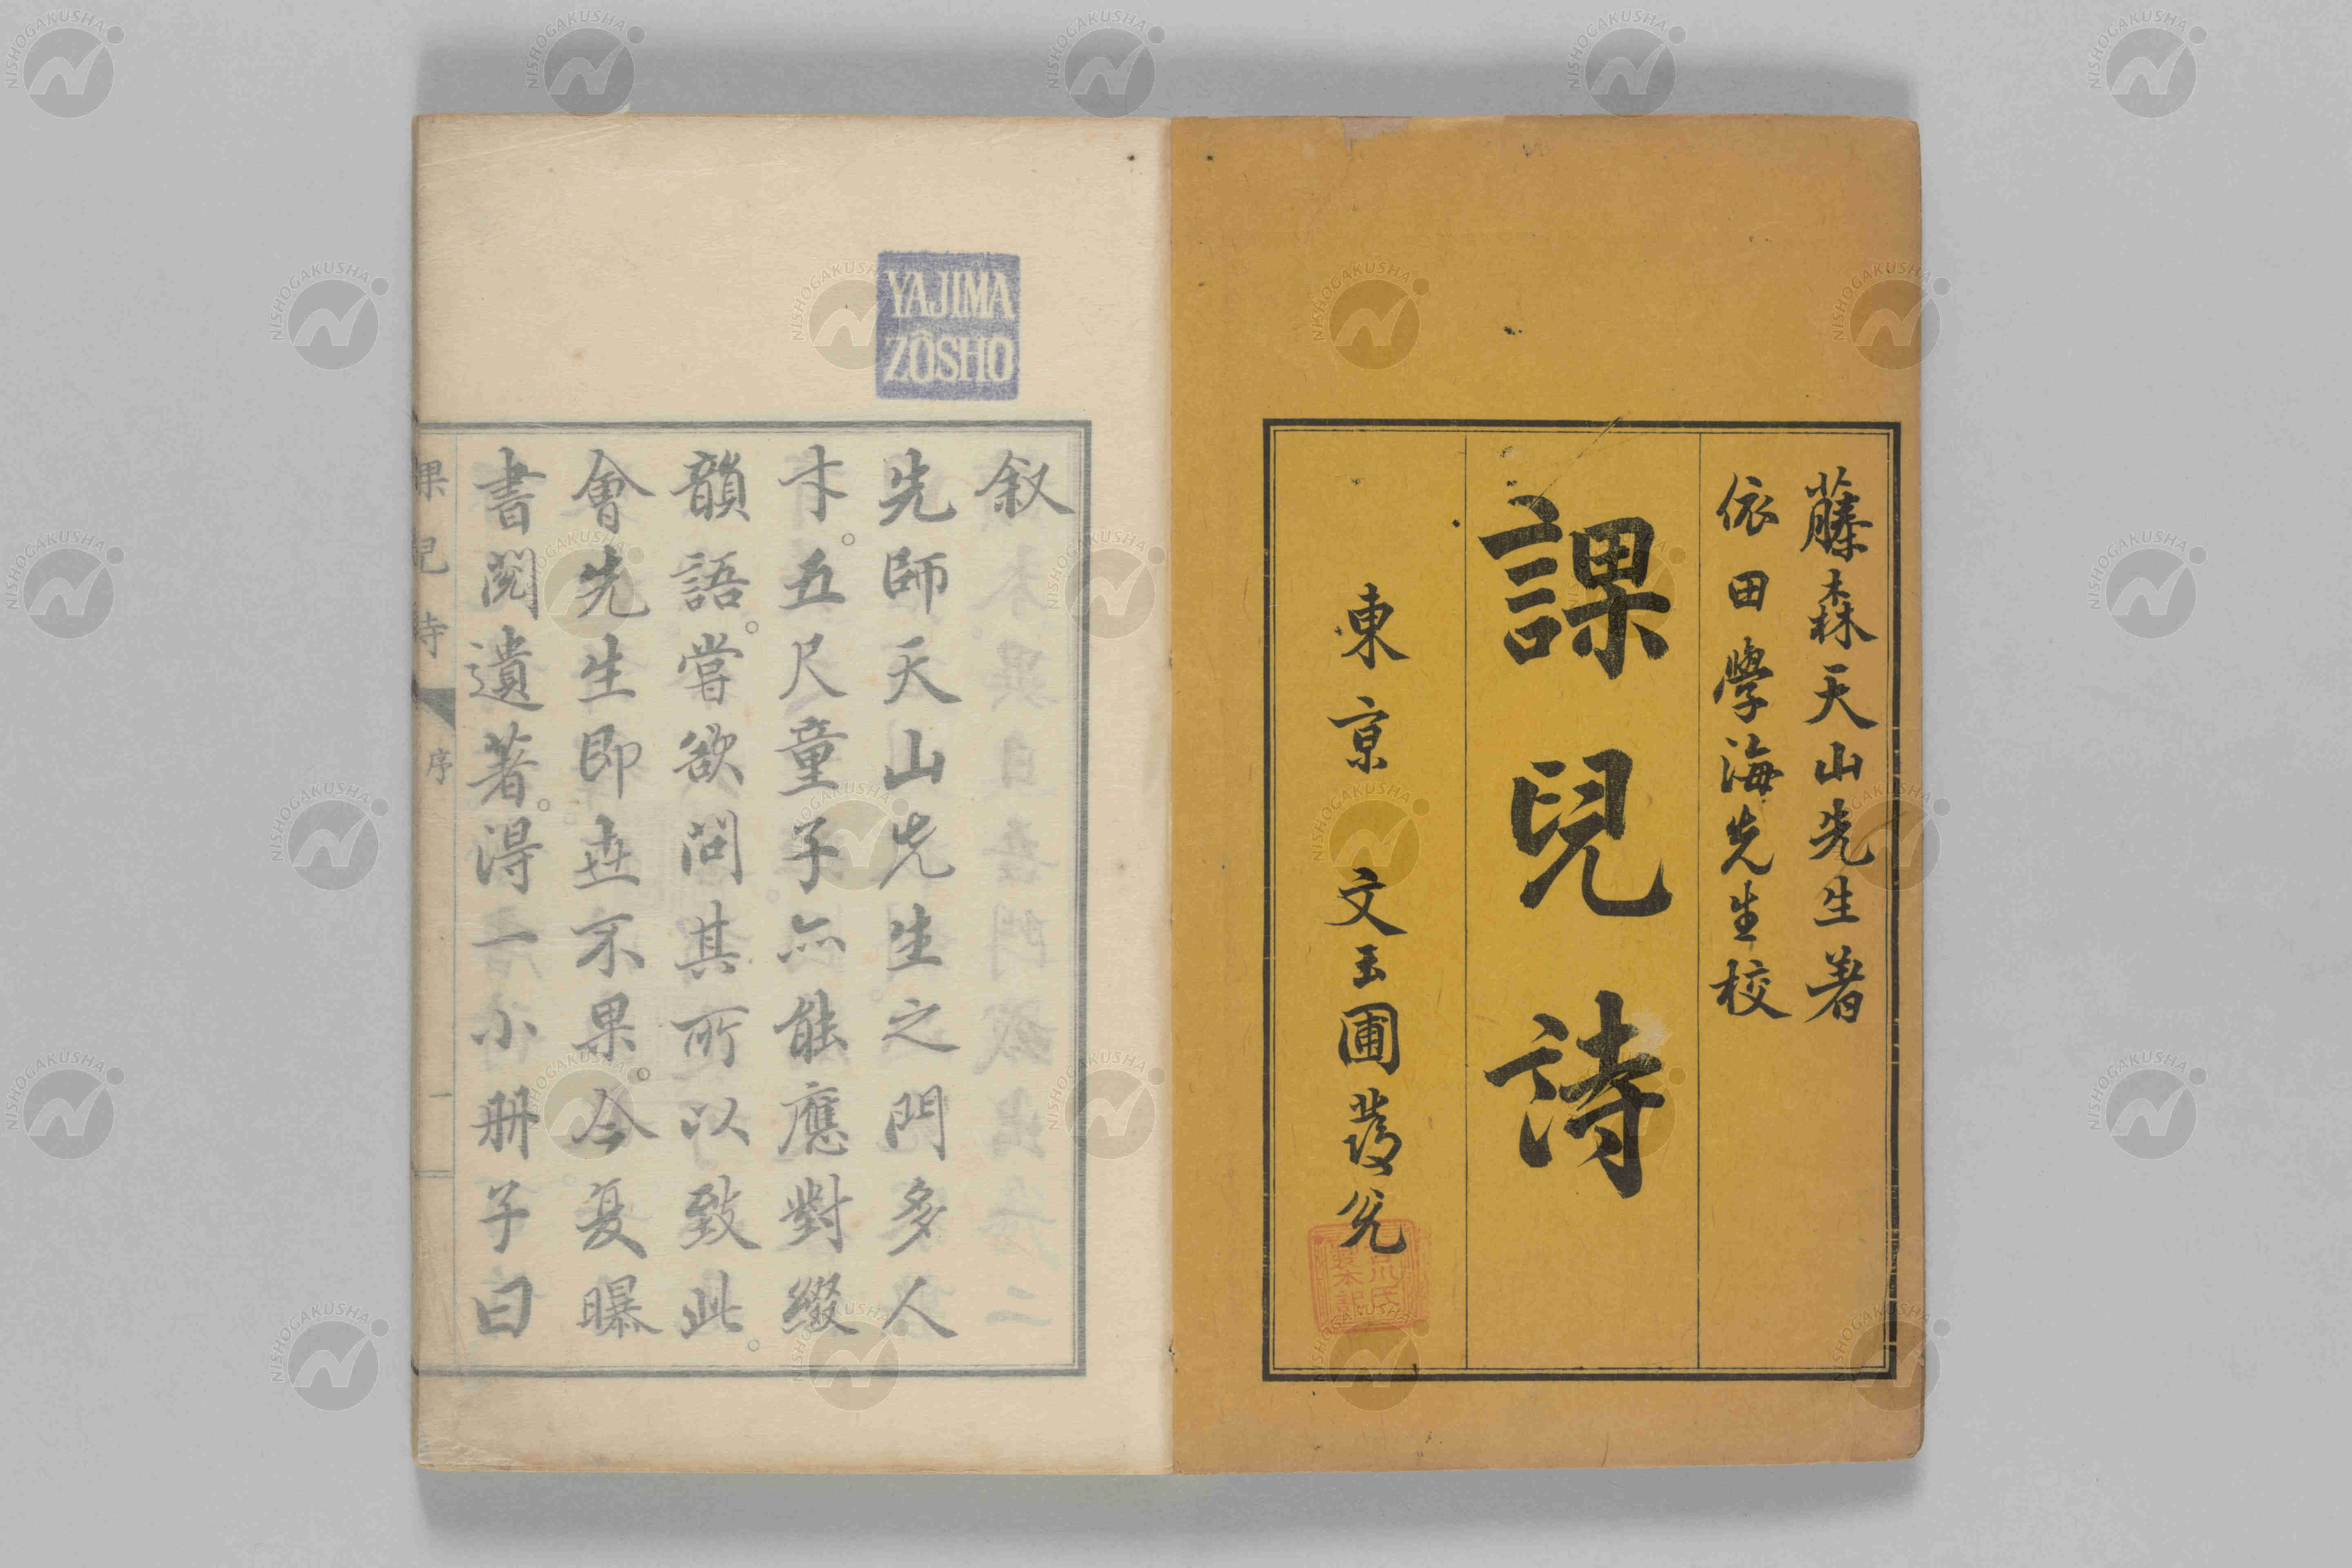 藤森天山先生著
依田學海先生校
課兒詩
東京 文玉圃發兌
製本記
YAJIMA
ZÔSHO
叙
先師天山先生之門多人
才。五尺童子亦能應對綴
韻語。嘗欲問其所以致此。
會先生即世不果。今夏曝
書閲遺著。得一小册子曰
課兒詩
序
一
NISHOGAKUSHA